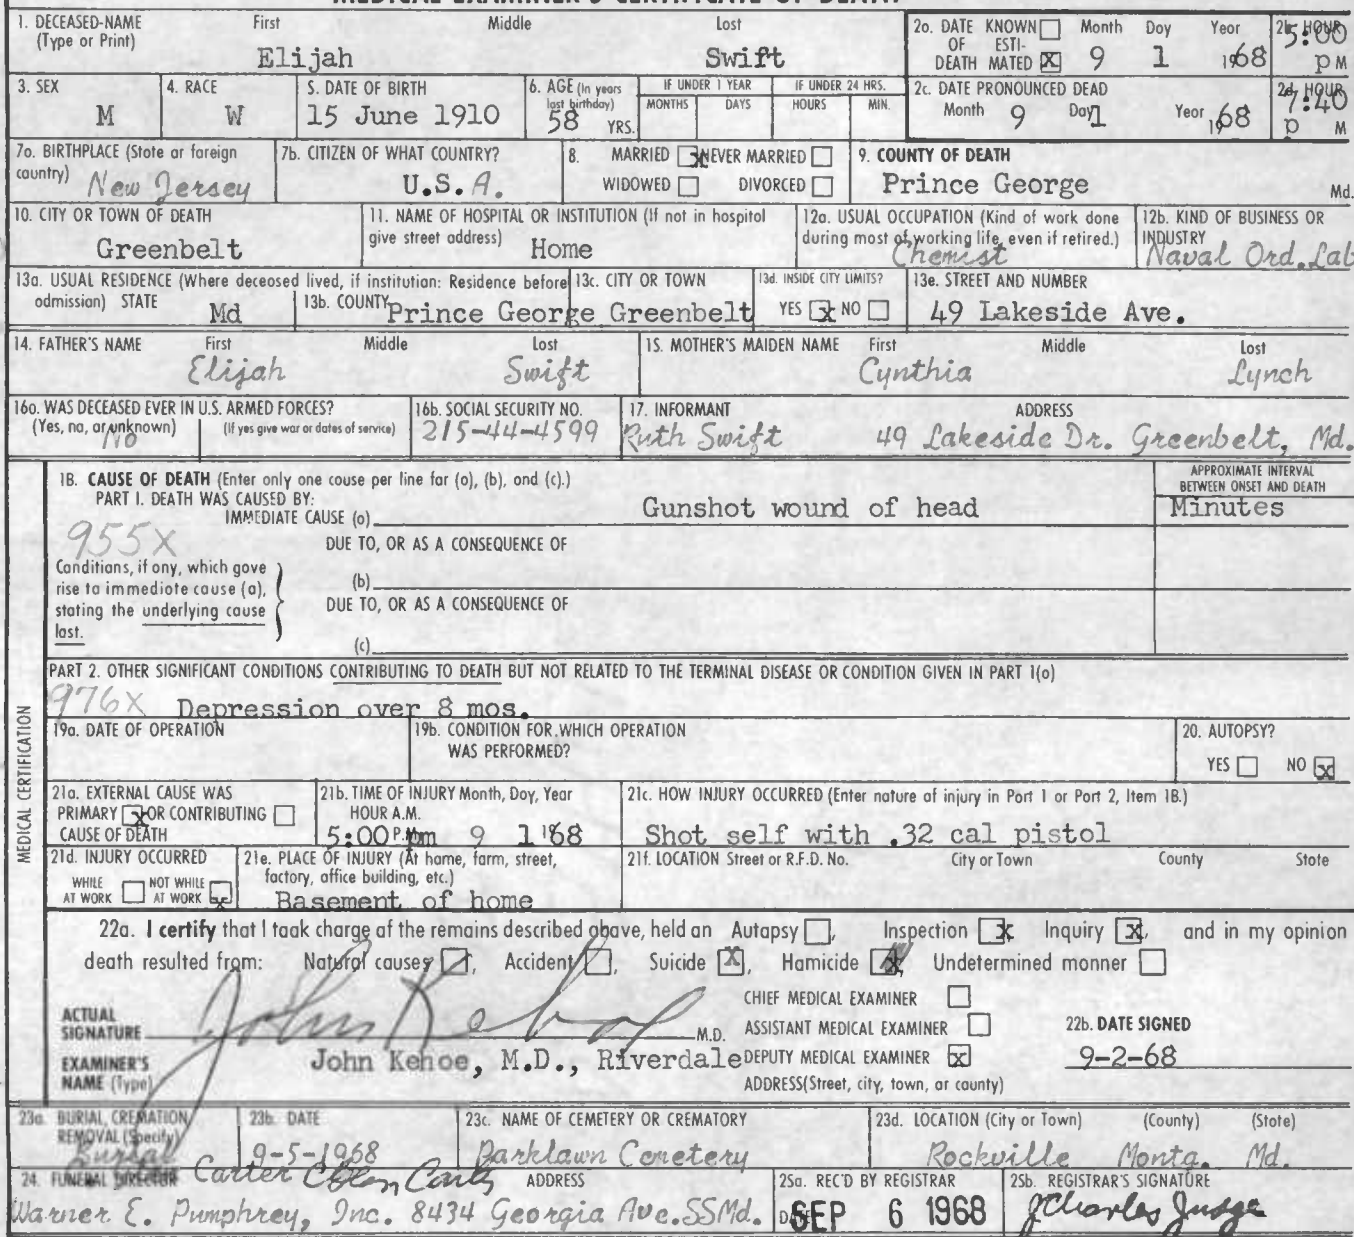 MEDICAL EXAMINER'S CERTIFICATE OF DEATH
1. DECEASED-NAME (Type or Print) First Middle Last
Elijah Swift
2a. DATE OF DEATH KNOWN ESTIMATED X Month 9 Day 1 Year 1968
2b. HOUR 5:00 P M
3. SEX M
4. RACE W
5. DATE OF BIRTH 15 June 1910
6. AGE (In years last birthday) 58 YRS.
IF UNDER 1 YEAR MONTHS DAYS
IF UNDER 24 HRS. HOURS MIN.
2c. DATE PRONOUNCED DEAD Month 9 Day 1 Year 1968
2d. HOUR 7:40 P M
7a. BIRTHPLACE (State or foreign country) New Jersey
7b. CITIZEN OF WHAT COUNTRY? U.S.A.
8. MARRIED X NEVER MARRIED
WIDOWED DIVORCED
9. COUNTY OF DEATH Prince George Md.
10. CITY OR TOWN OF DEATH Greenbelt
11. NAME OF HOSPITAL OR INSTITUTION (If not in hospital give street address) Home
12a. USUAL OCCUPATION (Kind of work done during most of working life, even if retired.) Chemist
12b. KIND OF BUSINESS OR INDUSTRY Naval Ord. Lab
13a. USUAL RESIDENCE (Where deceased lived, if institution: Residence before admission) STATE Md
13b. COUNTY Prince George
13c. CITY OR TOWN Greenbelt
13d. INSIDE CITY LIMITS? YES X NO
13e. STREET AND NUMBER 49 Lakeside Ave.
14. FATHER'S NAME First Middle Last
Elijah Swift
15. MOTHER'S MAIDEN NAME First Middle Last
Cynthia Lynch
16a. WAS DECEASED EVER IN U.S. ARMED FORCES? (Yes, no, or unknown) (If yes give war or dates of service) No
16b. SOCIAL SECURITY NO. 215-44-4599
17. INFORMANT ADDRESS
Ruth Swift 49 Lakeside Dr. Greenbelt, Md.
MEDICAL CERTIFICATION
18. CAUSE OF DEATH (Enter only one cause per line for (a), (b), and (c).)
APPROXIMATE INTERVAL BETWEEN ONSET AND DEATH
PART I. DEATH WAS CAUSED BY:
IMMEDIATE CAUSE (a) Gunshot wound of head Minutes
955X
DUE TO, OR AS A CONSEQUENCE OF
Conditions, if any, which gave rise to immediate cause (a), stating the underlying cause last.
(b)
DUE TO, OR AS A CONSEQUENCE OF
(c)
PART 2. OTHER SIGNIFICANT CONDITIONS CONTRIBUTING TO DEATH BUT NOT RELATED TO THE TERMINAL DISEASE OR CONDITION GIVEN IN PART 1(a)
976X Depression over 8 mos.
19a. DATE OF OPERATION
19b. CONDITION FOR WHICH OPERATION WAS PERFORMED?
20. AUTOPSY? YES NO X
21a. EXTERNAL CAUSE WAS PRIMARY X OR CONTRIBUTING CAUSE OF DEATH
21b. TIME OF INJURY Month, Day, Year HOUR A.M. P.M.
5:00 pm 9 1 '68
21c. HOW INJURY OCCURRED (Enter nature of injury in Part 1 or Part 2, Item 18.)
Shot self with .32 cal pistol
21d. INJURY OCCURRED WHILE AT WORK NOT WHILE AT WORK X
21e. PLACE OF INJURY (At home, farm, street, factory, office building, etc.)
Basement of home
21f. LOCATION Street or R.F.D. No. City or Town County State
22a. I certify that I took charge of the remains described above, held an Autopsy, Inspection X Inquiry X, and in my opinion
death resulted from: Natural causes, Accident, Suicide X, Homicide X, Undetermined manner
ACTUAL SIGNATURE John Kehoe M.D.
CHIEF MEDICAL EXAMINER
ASSISTANT MEDICAL EXAMINER
22b. DATE SIGNED
EXAMINER'S NAME (Type) John Kehoe, M.D., Riverdale DEPUTY MEDICAL EXAMINER X 9-2-68
ADDRESS(Street, city, town, or county)
23a. BURIAL, CREMATION, REMOVAL (Specify) Burial
23b. DATE 9-5-1968
23c. NAME OF CEMETERY OR CREMATORY Parklawn Cemetery
23d. LOCATION (City or Town) (County) (State)
Rockville Montg. Md.
24. FUNERAL DIRECTOR Carter ADDRESS
Warner E. Pumphrey, Inc. 8434 Georgia Ave. SSMd.
25a. REC'D BY REGISTRAR DATE SEP 6 1968
25b. REGISTRAR'S SIGNATURE J Charles Judge